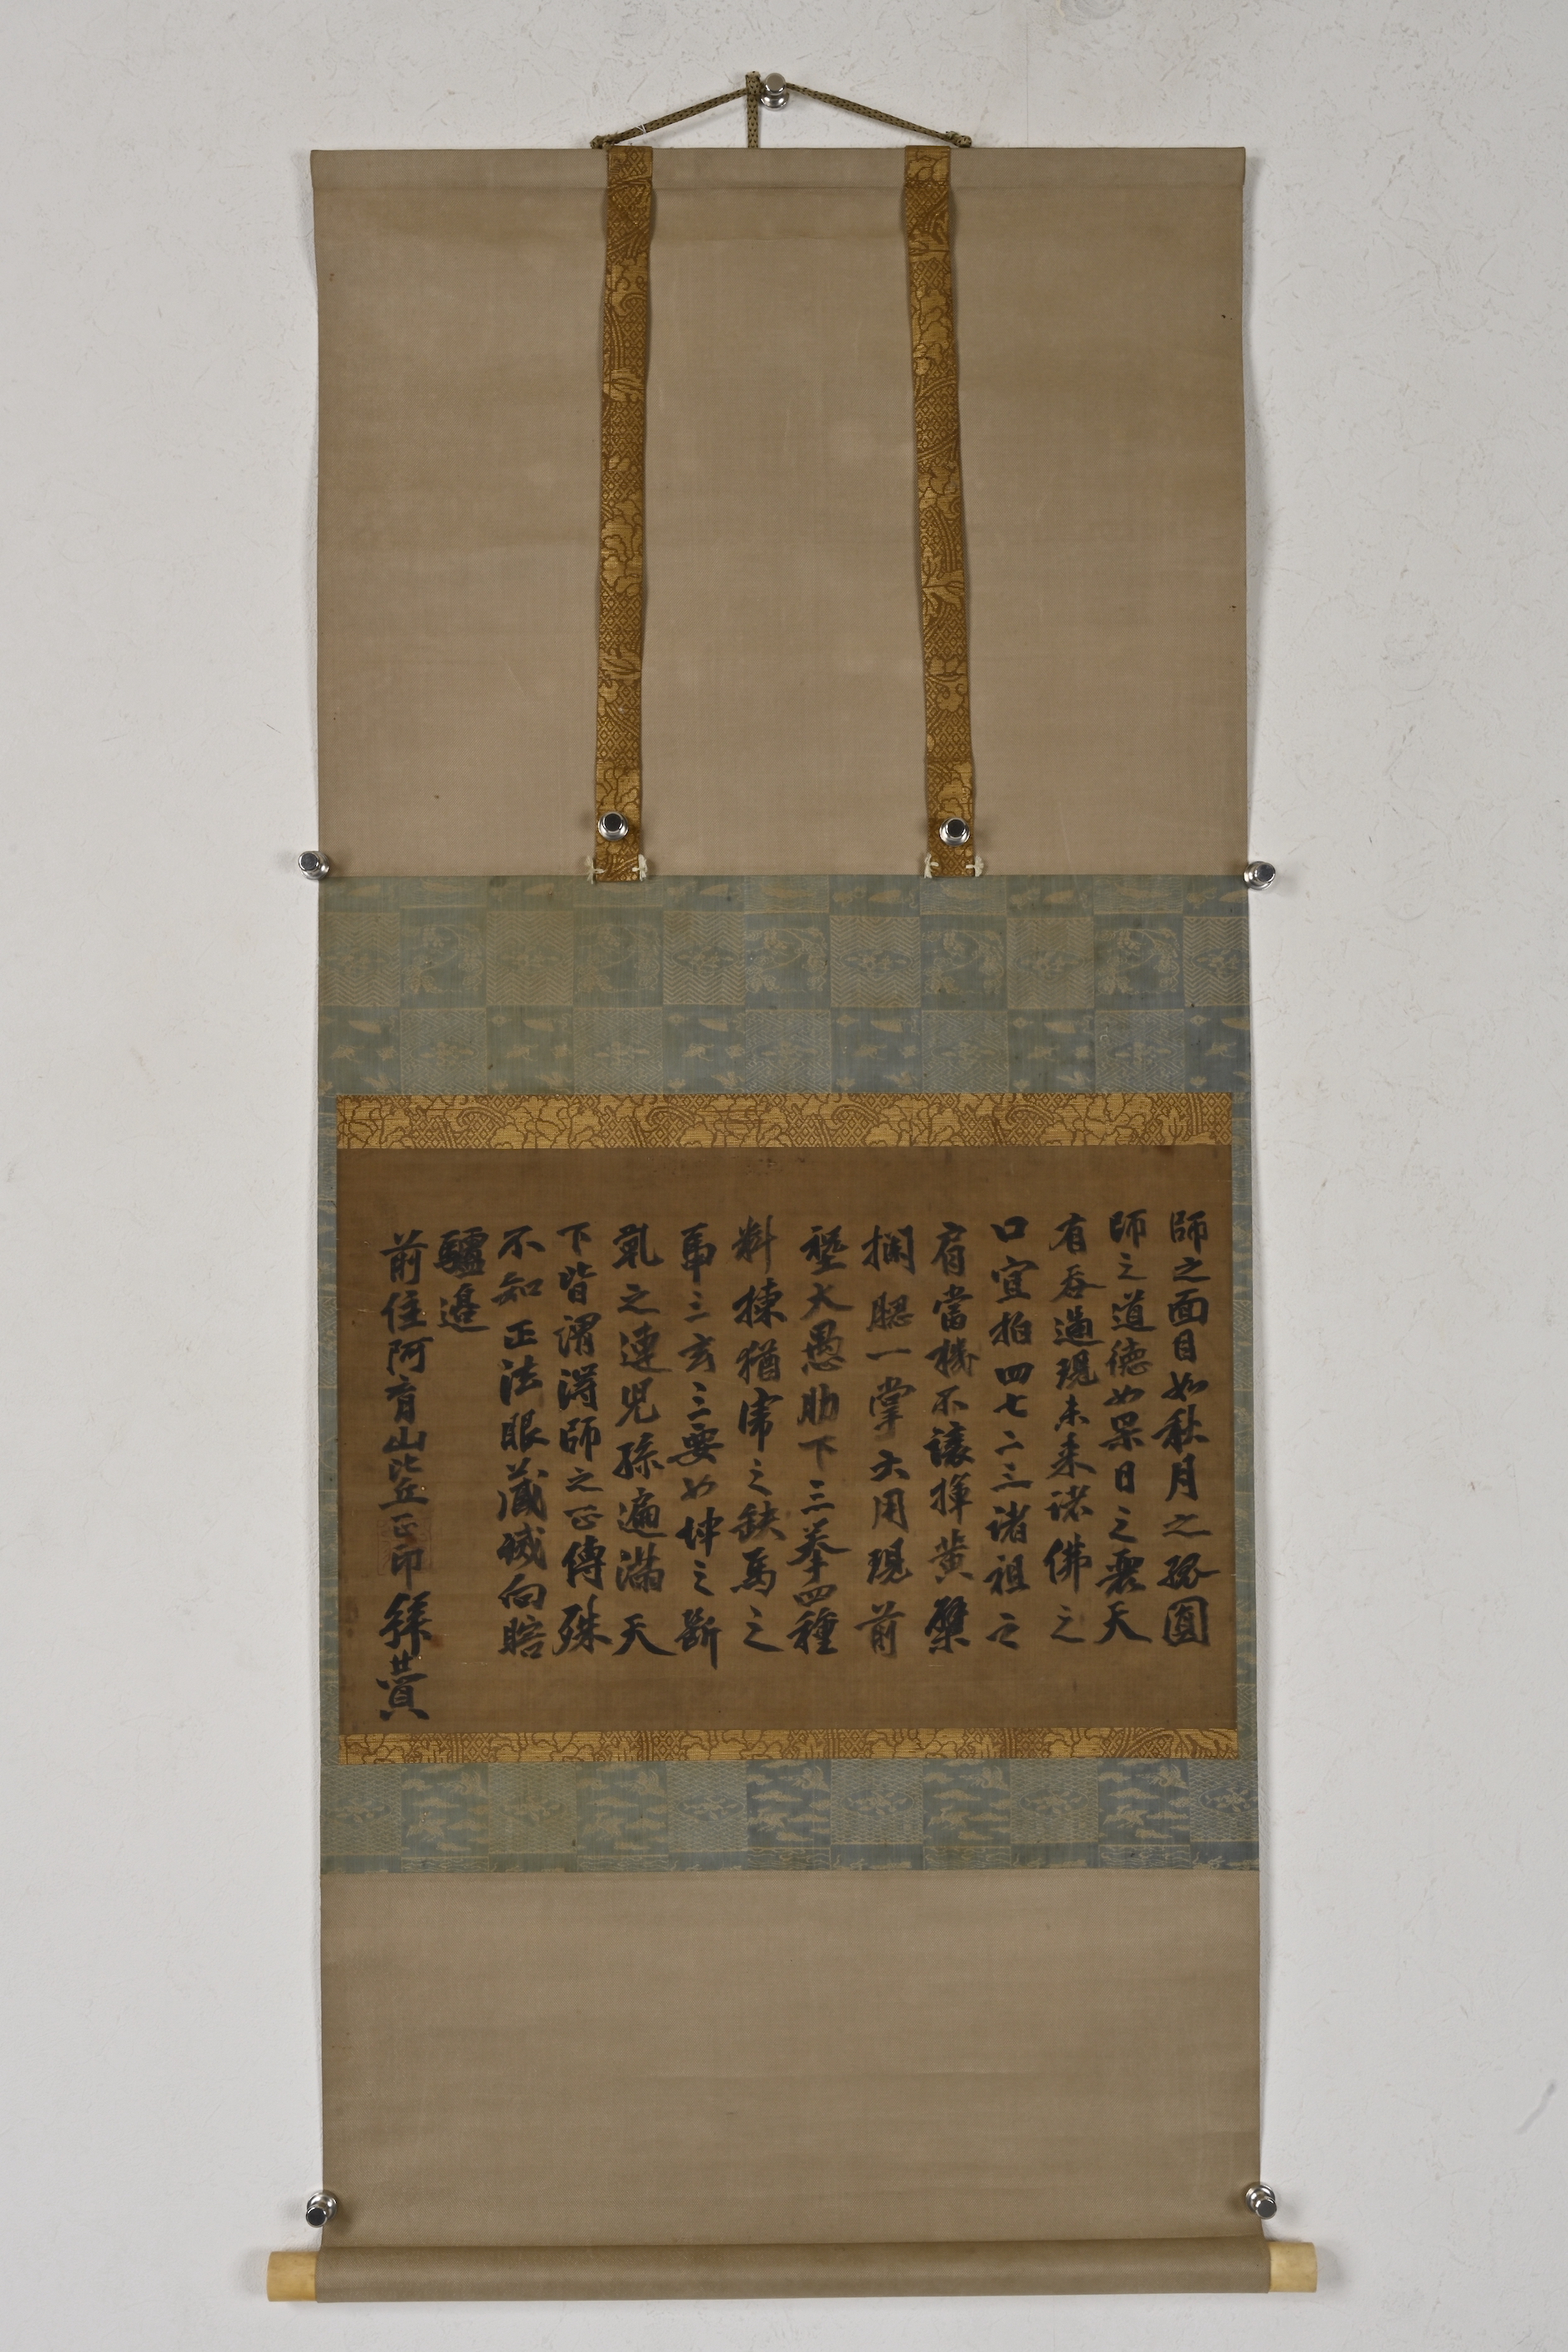 師之面目如秋月之孤圓
師之道德如杲日之麗天
有吞過現未来諸佛之
口宜拍四七二三諸祖之
肩當機不讓揮黃檗
攔腮一掌大用現前
築大愚肋下三拳四種
料揀猶之缺馬之
三玄三要如坤之斷
乹之連児孫遍滿天
下皆謂得師之正傳殊
不知正法眼藏滅向瞎
驢邊
前住阿育山比丘正印拜賛